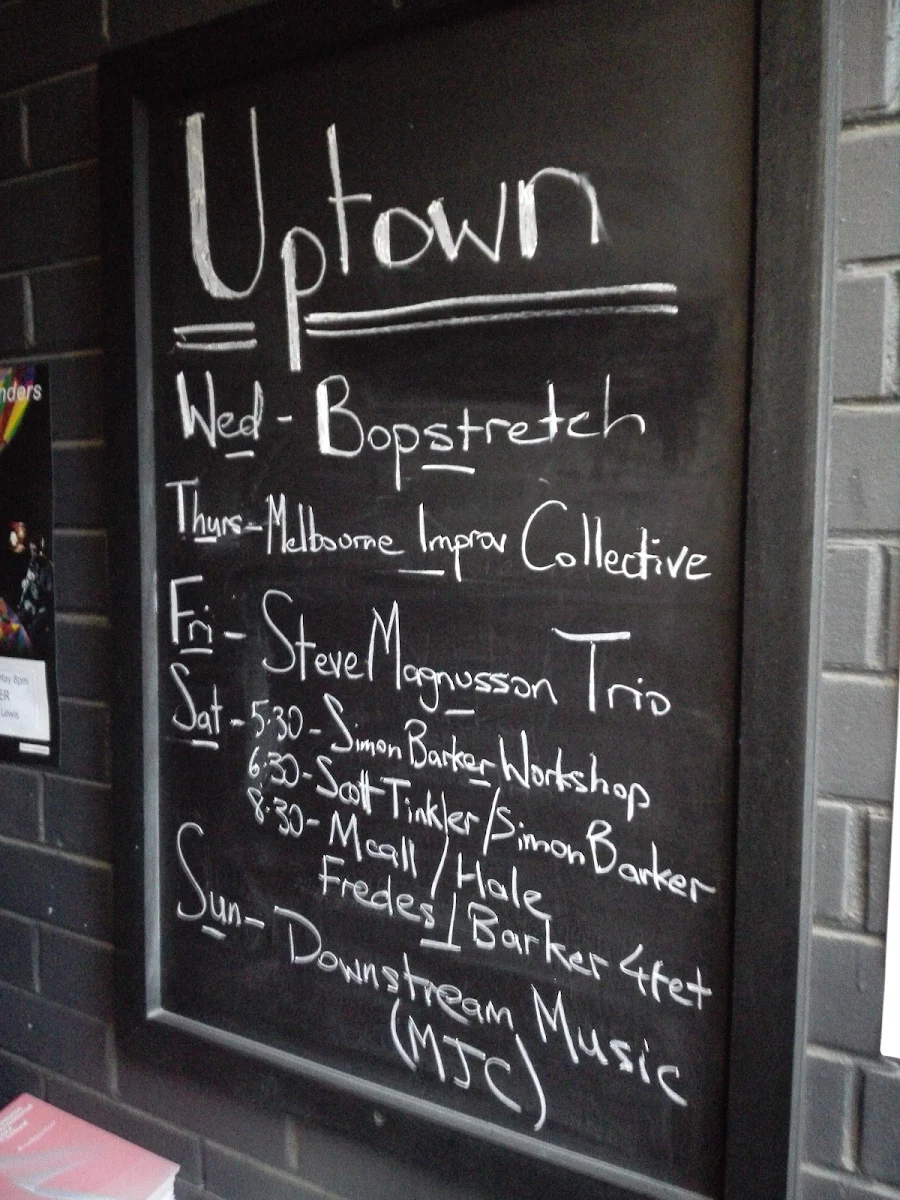 Uptown
Wed - Bopstretch
Thurs - Melbourne Improv Collective
Fri - Steve Magnusson Trio
Sat - 5.30 - Simon Barker Workshop
6.30 - Scott Tinkler / Simon Barker
8.30 - Mcall / Hale
Fredes / Barker 4tet
Sun - Downstream Music
(MJC)
nders
May 8pm
ER
Lewis